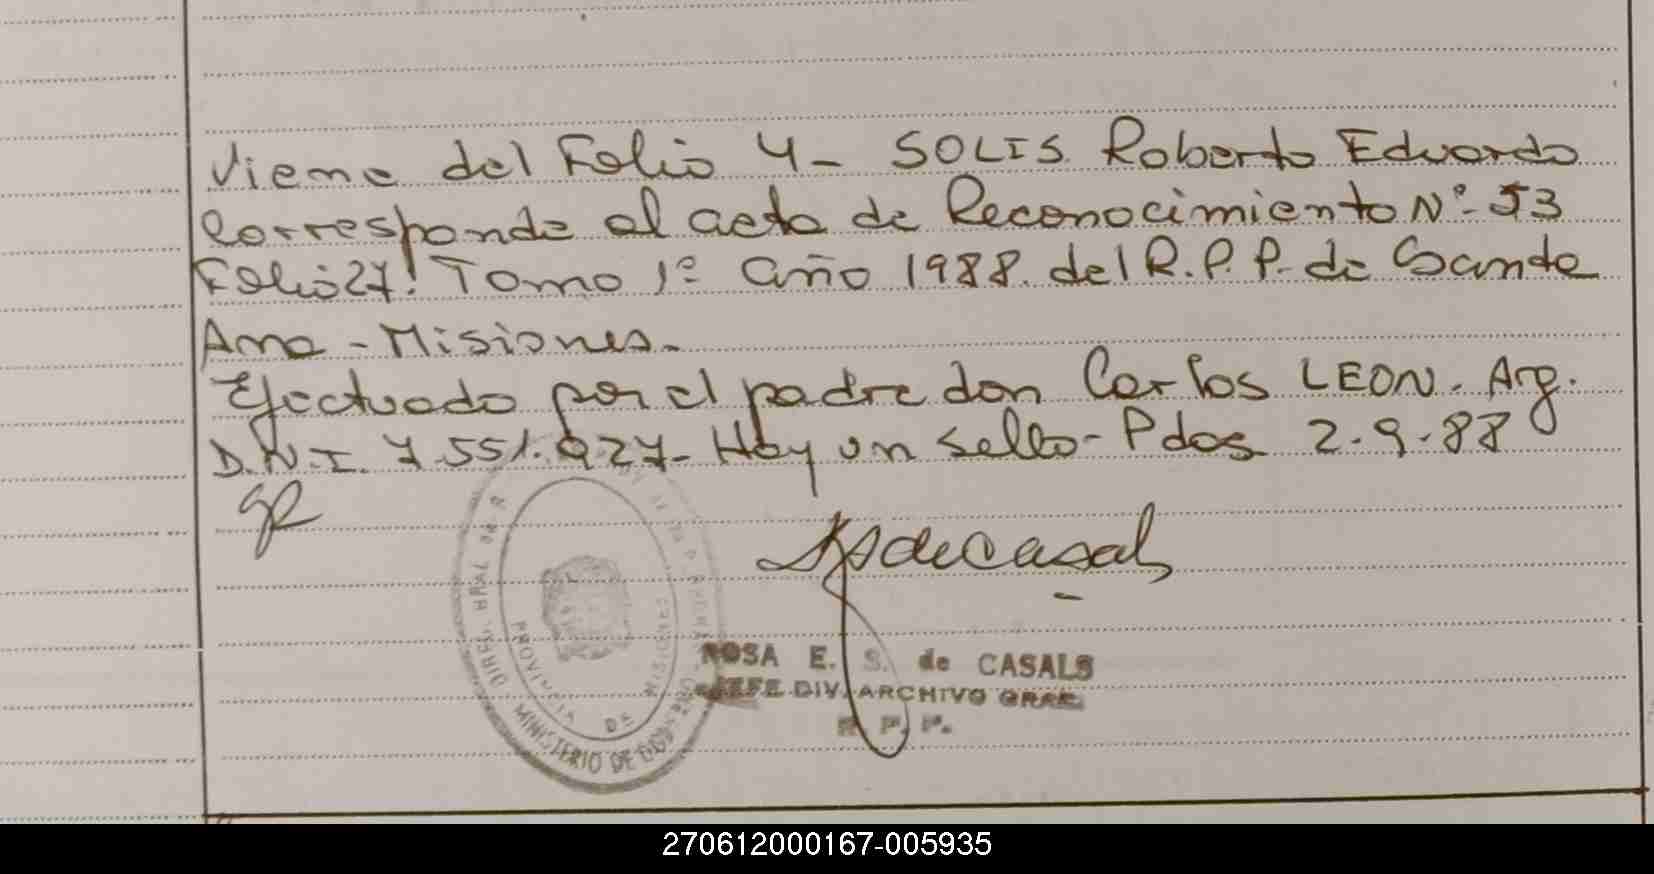 Viene del Folio 4- SOLIS Roberto Eduardo
Corresponde al acta de Reconocimiento Nº- 53
Folio 27. Tomo 1º año 1988. del R.P.P. de Santa
Ana - Misiones.
Efectuado por el padre don Carlos LEON. Arg.
D.N.I. 7.551.927- Hay un sello- Pdas 2-9-88
PROVINCIA DE MISIONES
MINISTERIO DE GOBIERNO
ROSA E. S. de CASALS
JEFE DIV. ARCHIVO GRAL.
R. P. P.
270612000167-005935